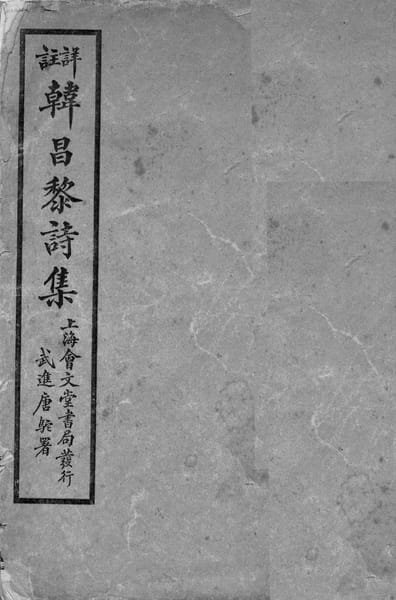 詳註
韓昌黎詩集
上海會文堂書局發行
武進唐駝署